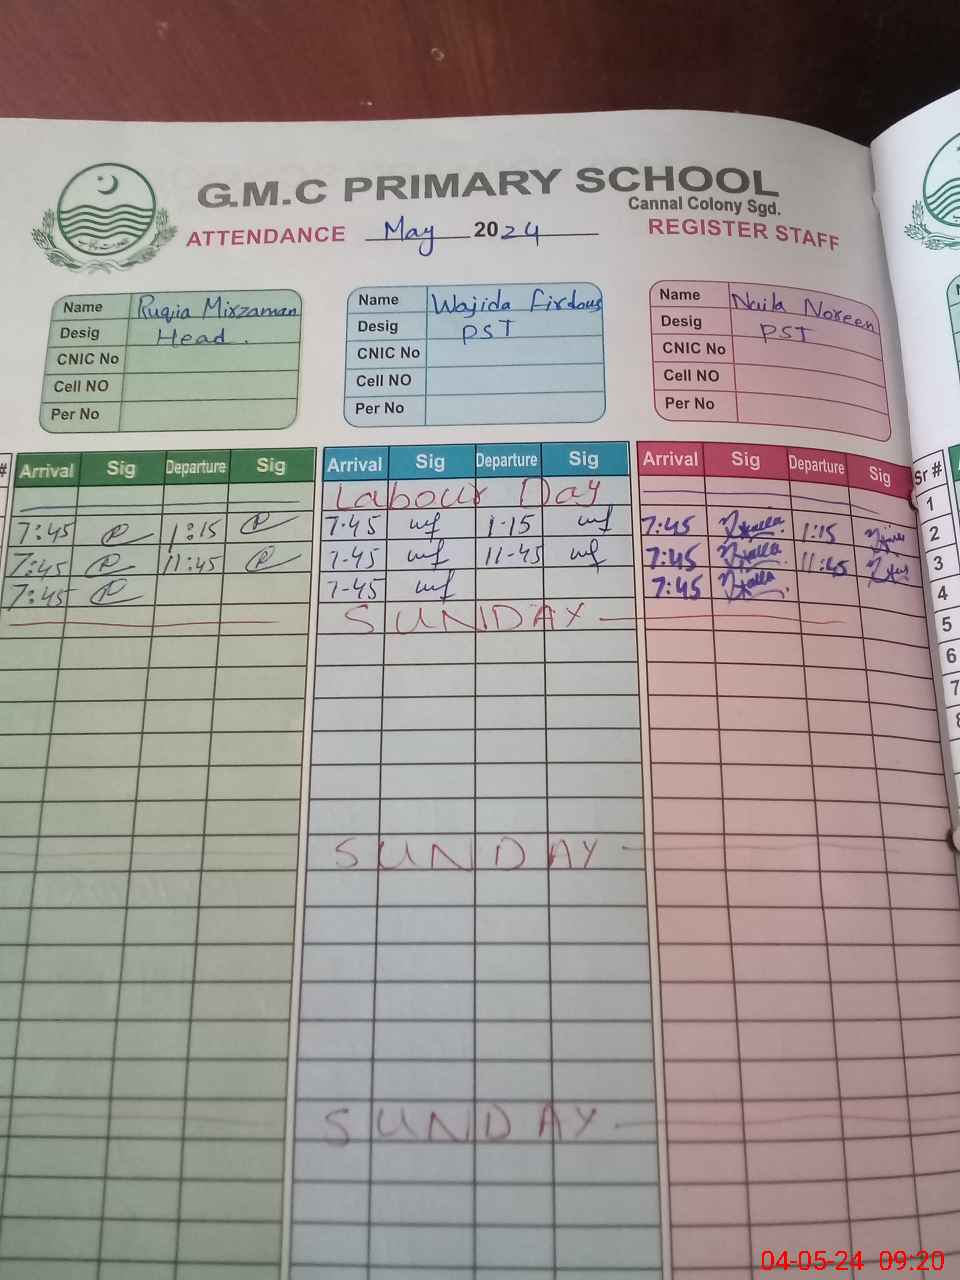 G.M.C PRIMARY SCHOOL
Cannal Colony Sgd.
ATTENDANCE May 2024 REGISTER STAFF
Name Ruqia Mirzaman
Desig Head.
CNIC No
Cell NO
Per No
Name Wajida Firdous
Desig PST
CNIC No
Cell NO
Per No
Name Naila Noreen
Desig PST
CNIC No
Cell NO
Per No
# Arrival Sig Departure Sig Arrival Sig Departure Sig Arrival Sig Departure Sig Sr #
Labour Day 1
7:45 1:15 7-45 wf 1-15 wf 7:45 1:15 2
7:45 11:45 7-45 wf 11-45 wf 7:45 11:45 3
7:45 7-45 wf 7:45 4
SUNDAY 5
6
7
8
SUNDAY
SUNDAY
04-05-24 09:20